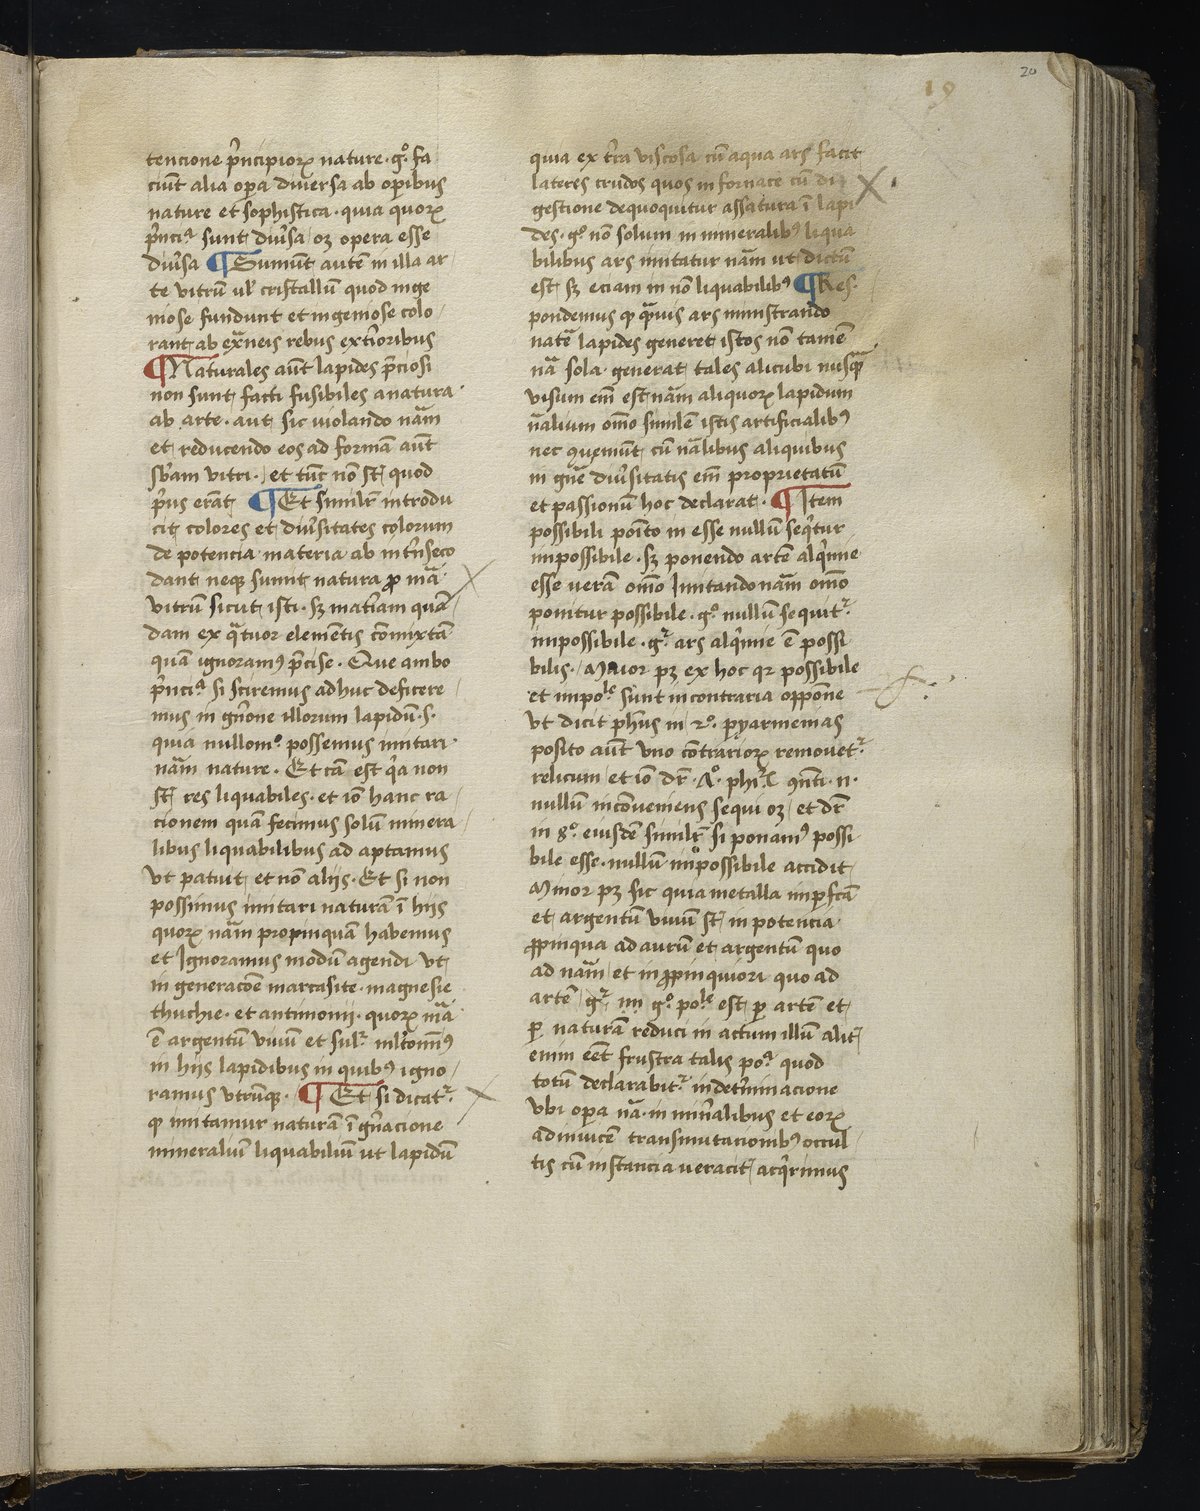 20
19
tencione p̃ncipioꝝ nature · gͦ fa
ciũt alia oꝑa diuersa ab oꝑibus
nature et sophistica · quia quoꝝ
p̃nciª sunt diũsa oꝫ opera esse
diũsa ¶ Sumũt autẽ in illa ar
te vitrũ ul̃ cristallũ quod inge
niose fundunt et ingeniose colo
rant ab ex̃neis rebus ext̃ioribus
¶ Naturales aũt lapides p̃ciosi
non sunt facti fusibiles a natura
ab arte · aut sic violando nãm
et reducendo eos ad formã aũt
sb̃am vitri · et tũc nõ st̃ quod
p̃us erãt ¶ Et simil̃r introdu
cit colores et diũsitates colorum
de potencia materia ab int̃nseco
dant neqꝫ sumit natura ꝓ mã
vitrũ sicut isti · sꝫ mat̃iam quã
dam ex q̃tuor elemẽtis cõmixtã
quã ignoramꝰ p̃cise · Que ambo
p̃nciª si sciremus adhuc deficere
mus in gñone illorum lapidũ · s ·
quia nullomͦ possemus imitari
nãm nature · Et cã est q̃a non
st̃ res liquabiles · et iõ hanc ra
cionem quã fecimus solũ minera
libus liquabilibus ad aptamus
vt patuit et nõ alijs · Et si non
possimus imitari naturã ĩ hijs
quoꝝ nãm propinquã habemus
et Ignoramus modũ agendi vt
in generacõe marcasite · magnesie
thuchie · et antimonij · quoꝝ mã
ẽ argentũ viuũ et sulͬ
in hijs lapidibus in quibꝰ igno
ramus vtrũqꝫ · ¶ Et si dicatͬ
ꝙ imitamur naturã ĩ gñacione
mineraliũ liquabiliũ ut lapidũ
quia ex t̃ra viscosa cũ aqua ars facit
lateres crudos quos in fornace cũ di
gestione dequoquitur assatura ĩ lapi
des · gͦ nõ solum in mineralibꝰ liqua
bilibus ars imitatur nãm ut dictũ
est sꝫ eciam in nõ liquabilibꝰ ¶ Res
pondemus ꝙ q̃uis ars ministrando
natẽ lapides generet istos nõ tamẽ
nã sola · generat tales alicubi nusq̃
visum em̃ est nãm aliquoꝝ lapidum
ñalium om̃o similẽ istis artificialibꝰ
nec cũ nãlibus aliquibus
in gñe diũsitatis em̃ proprietatũ
et passionũ hoc declarat · ¶ Item
possibili poĩto in esse nullũ seq̃tur
impossibile · sꝫ ponendo artẽ alq̃mie
esse verã om̃o Imitando nãm om̃o
ponitur possibile · gͦ nullũ sequitͬ
impossibile · gͬ ars alq̃mie ẽ possi
bilis · Maior pꝫ ex hoc qꝛ possibile
et impoˡᵉ sunt in contraria oppõne
vt dicit ph̃us in 2ͦ · peryarmenias
posito aũt vno cõtrarioꝝ remouetͬ
relicum et iõ dr̃ · Aͦ
nullũ incõveniens sequi oꝫ et dr̃
in 8ͦ · eiusdẽ simil̃r si ponamꝰ possi
bile esse · nullũ impossibile accidit
Minor pꝫ sic quia metalla imꝑfcã
et argentũ viuũ st̃ in potencia
ꝓpinqua ad aurũ et argentũ quo
ad nãm et in ꝓpinquiori quo ad
artẽ gͬ gͦ poˡᵉ est ꝑ artẽ et
ꝑ naturã reduci in actum illũ alit̃
enim eẽt frustra talis poª quod
totũ declarabitͬ in det̃minacione
vbi oꝑa nã in min̄alibus et eoꝝ
adinuicẽ transmutacionibꝰ occul
tis cũ instancia veracit̃ acq̃rimus